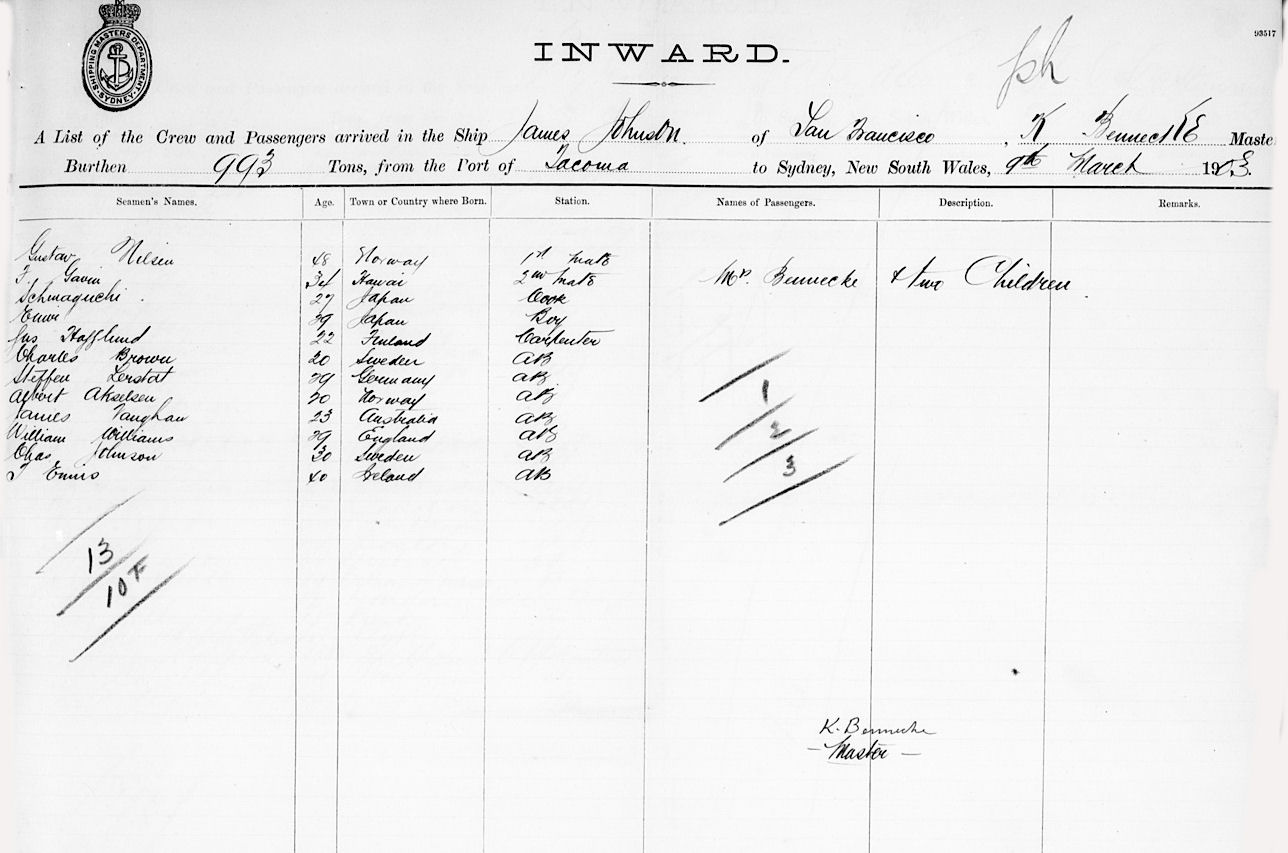 SHIPPING MASTERS DEPARTMENT SYDNEY
93517
INWARD.
A List of the Crew and Passengers arrived in the Ship James Johnson. of San Francisco, K Bennecke Maste
Burthen 993 Tons, from the Port of Tacoma to Sydney, New South Wales, 9th March 1903.
Seamen's Names. Age. Town or Country where Born. Station. Names of Passengers. Description. Remarks.
Gustav Nilsen 48 Norway 1st mate
F. Gavin 34 Hawai 2nd mate Mrs. Bennecke & two Children
Schmaguchi 27 Japan Cook
29 Japan Boy
Gus Hafflund 22 Finland Carpenter
Charles Brown 20 Sweden AB
Steffen Lerstat 29 Germany AB
Albert Akselsen 20 Norway AB
James Vaughan 23 Australia AB
William Williams 29 England AB
Chas Johnson 30 Sweden AB
T Ennis 40 Ireland AB
1
2
3
13
10 F
K. Bennecke
- Master -